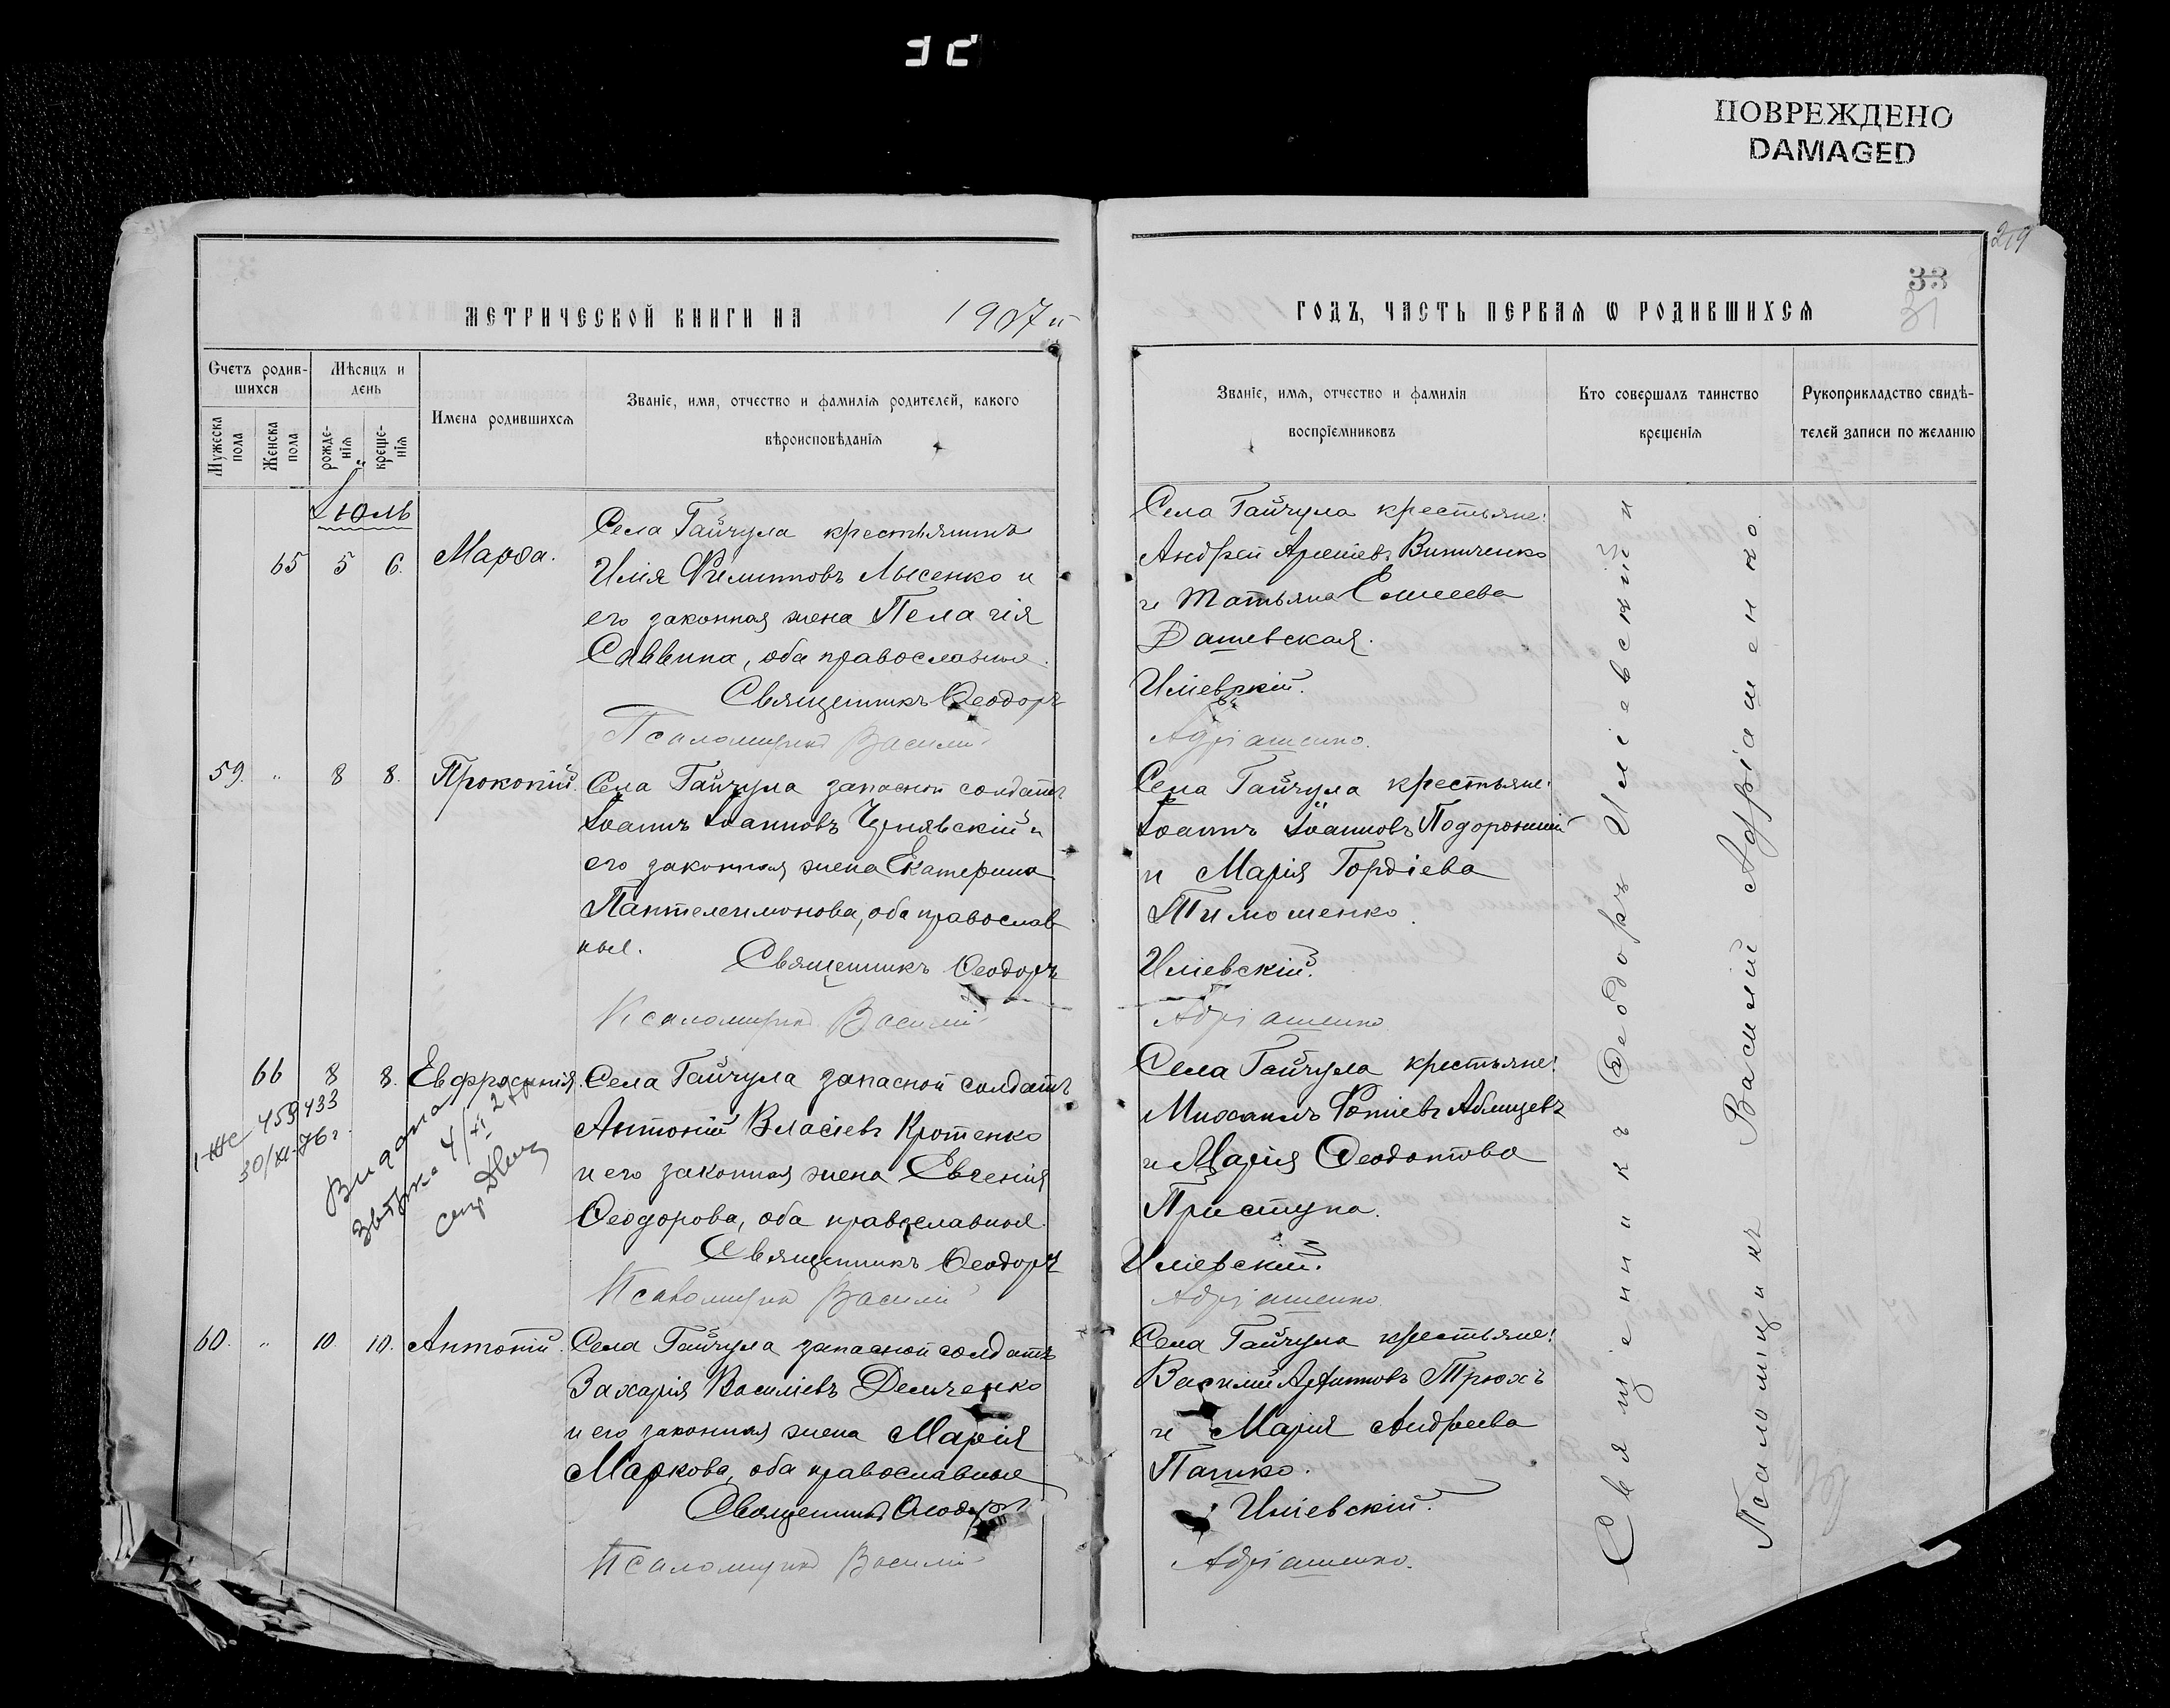 ПОВРЕЖДЕНО
DAMAGED
МЕТРИЧЕСКОЙ КНИГИ НА 1907й
Счетъ родив-
шихся
Мѣсяцъ и
день
Имена родившихся
Званіе, имя, отчество и фамилія родителей, какого
вѣроисповѣданія
Мужеска
пола
Женска
пола
рожде-
нія
креще-
нія
Іюль
65 5 6. Марѳа.
Села Гайчула крестьянинъ
Илія Филипповъ Лысенко и
его законная жена Пелагія
Саввина, оба православные.
Священникъ Ѳеодоръ
Псаломщикъ Василій
59. „ 8 8. Прокопій.
Села Гайчула запасной солдатъ
Іоаннъ Іоанновъ Чернявскій и
его законная жена Екатерина
Пантелеимонова, оба православ
ные.
Священникъ Ѳеодоръ
Псаломщикъ Василій
66 8 8. Евфросинія.
459433
30/XI-76г.
Видана
Села Гайчула запасной солдатъ
Антоній Власіевъ Кротенко
и его законная жена Евгенія
Ѳеодорова, оба православные.
Священникъ Ѳеодоръ
Псаломщикъ Василій
60. „ 10. 10. Антоній.
Села Гайчула запасной солдатъ
Захарія Василіевъ Демченко
и его законная жена Марія
Маркова, оба православные
Священникъ Ѳеодоръ
Псаломщикъ Василій
219
33
31
ГОДЪ, ЧАСТЬ ПЕРВАЯ Ѡ РОДИВШИХСЯ
Званіе, имя, отчество и фамилія
воспріемниковъ
Кто совершалъ таинство
крещенія
Рукоприкладство свидѣ-
телей записи по желанію
Села Гайчула крестьяне:
Андрей Винниченко
и Татьяна Елисеева
Дашевская.
Иліевскій.
Адріашенко.
Села Гайчула крестьяне:
Іоаннъ Іоанновъ Подорожній
и Марія Гордіева
Тимошенко.
Иліевскій.
Адріашенко
Села Гайчула крестьяне:
Михаилъ Фотіевъ Аблицевъ
и Марія Ѳеодотова
Приступа.
Иліевскій.
Адріашенко.
Села Гайчула крестьяне:
Василій Трюхъ
и Марія Андреева
Пашко.
Иліевскій.
Адріашенко.
Священникъ Ѳеодоръ Иліевскій и
Псаломщикъ Василій Адріашенко.